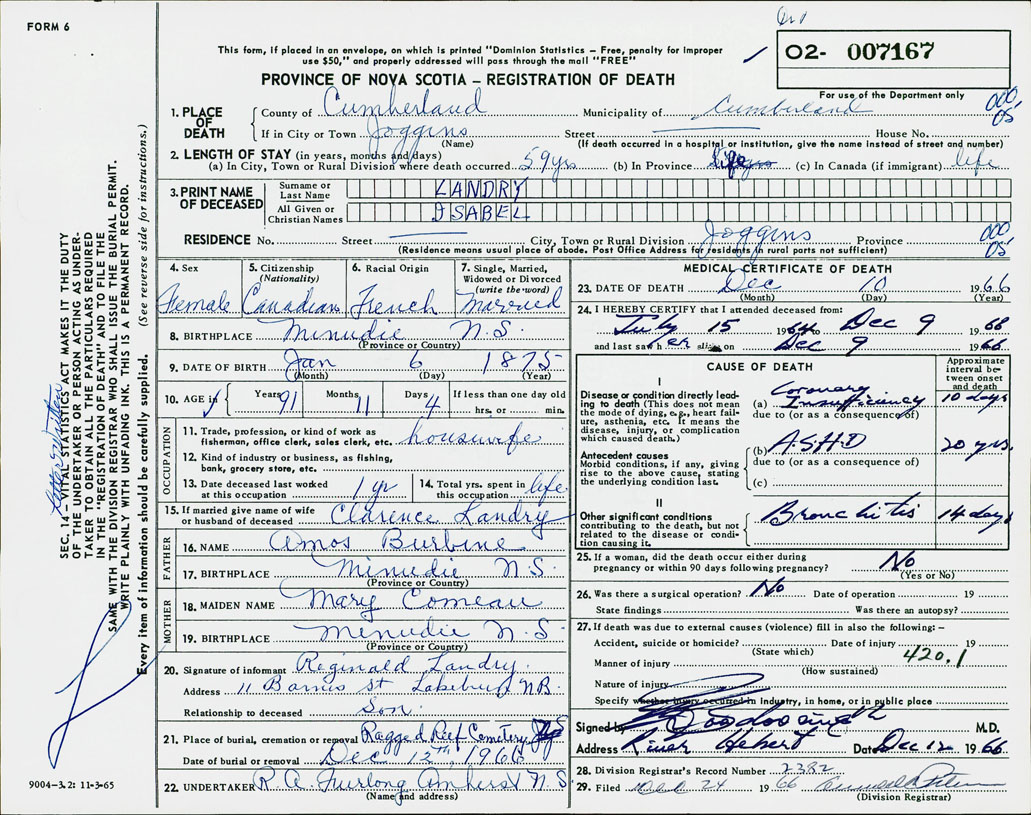 FORM 6
This form, if placed in an envelope, on which is printed "Dominion Statistics – Free, penalty for improper
use $50," and properly addressed will pass through the mail "FREE"
PROVINCE OF NOVA SCOTIA – REGISTRATION OF DEATH
02- 007167
For use of the Department only
1. PLACE OF DEATH County of Cumberland Municipality of Cumberland 000
05
If in City or Town Joggins Street House No.
(Name) (If death occurred in a hospital or institution, give the name instead of street and number)
2. LENGTH OF STAY (in years, months and days)
(a) In City, Town or Rural Division where death occurred 59 yrs (b) In Province life (c) In Canada (if immigrant) life
3. PRINT NAME OF DECEASED
Surname or Last Name LANDRY
All Given or Christian Names ISABEL
RESIDENCE No. Street City, Town or Rural Division Joggins Province 000
05
(Residence means usual place of abode. Post Office Address for residents in rural parts not sufficient)
4. Sex Female
5. Citizenship (Nationality) Canadian
6. Racial Origin French
7. Single, Married, Widowed or Divorced (write the word) Married
8. BIRTHPLACE Minudie N.S.
(Province or Country)
9. DATE OF BIRTH Jan 6 1875
(Month) (Day) (Year)
10. AGE in Years 91 Months 11 Days 4 If less than one day old hrs. or min.
OCCUPATION
11. Trade, profession, or kind of work as
fisherman, office clerk, sales clerk, etc. housewife
12. Kind of industry or business, as fishing,
bank, grocery store, etc.
13. Date deceased last worked
at this occupation 1 yr
14. Total yrs. spent in
this occupation life
15. If married give name of wife
or husband of deceased Clarence Landry
FATHER
16. NAME Amos Burbine
17. BIRTHPLACE Minudie N.S.
(Province or Country)
MOTHER
18. MAIDEN NAME Mary Comeau
19. BIRTHPLACE Minudie N.S
(Province or Country)
20. Signature of informant Reginald Landry
Address 11 St N.B.
Relationship to deceased Son
21. Place of burial, cremation or removal Ragged Reef Cemetery
Date of burial or removal Dec 12th, 1966
22. UNDERTAKER R. A. Furlong Amherst N.S.
(Name and address)
MEDICAL CERTIFICATE OF DEATH
23. DATE OF DEATH Dec 10 1966
(Month) (Day) (Year)
24. I HEREBY CERTIFY that I attended deceased from:
July 15 1964 to Dec 9 1966
and last saw her alive on Dec 9 1966
CAUSE OF DEATH
Approximate interval between onset and death
I
Disease or condition directly leading to death (This does not mean the mode of dying, e.g., heart failure, asthenia, etc. It means the disease, injury, or complication which caused death.)
(a) Coronary Insufficiency 10 days
due to (or as a consequence of)
Antecedent causes
Morbid conditions, if any, giving rise to the above cause, stating the underlying condition last.
(b) A.S.H.D 20 yrs.
due to (or as a consequence of)
(c)
II
Other significant conditions
contributing to the death, but not related to the disease or condition causing it.
Bronchitis 14 days
25. If a woman, did the death occur either during
pregnancy or within 90 days following pregnancy? No
(Yes or No)
26. Was there a surgical operation? No Date of operation 19
State findings Was there an autopsy?
27. If death was due to external causes (violence) fill in also the following:–
Accident, suicide or homicide? Date of injury 19
(State which)
Manner of injury 420.1
(How sustained)
Nature of injury
Specify whether injury occurred in industry, in home, or in public place
Signed by M.D.
Address River Hebert Date Dec 12 1966
28. Division Registrar's Record Number 2382
29. Filed Dec 24 1966
(Division Registrar)
SEC. 14 – VITAL STATISTICS ACT MAKES IT THE DUTY
OF THE UNDERTAKER OR PERSON ACTING AS UNDER-
TAKER TO OBTAIN ALL THE PARTICULARS REQUIRED
IN THE "REGISTRATION OF DEATH" AND TO FILE THE
SAME WITH THE DIVISION REGISTRAR WHO SHALL ISSUE THE BURIAL PERMIT.
WRITE PLAINLY WITH UNFADING INK. THIS IS A PERMANENT RECORD.
Every item of information should be carefully supplied. (See reverse side for instructions.)
letter written
9004-3.2: 11-3-65